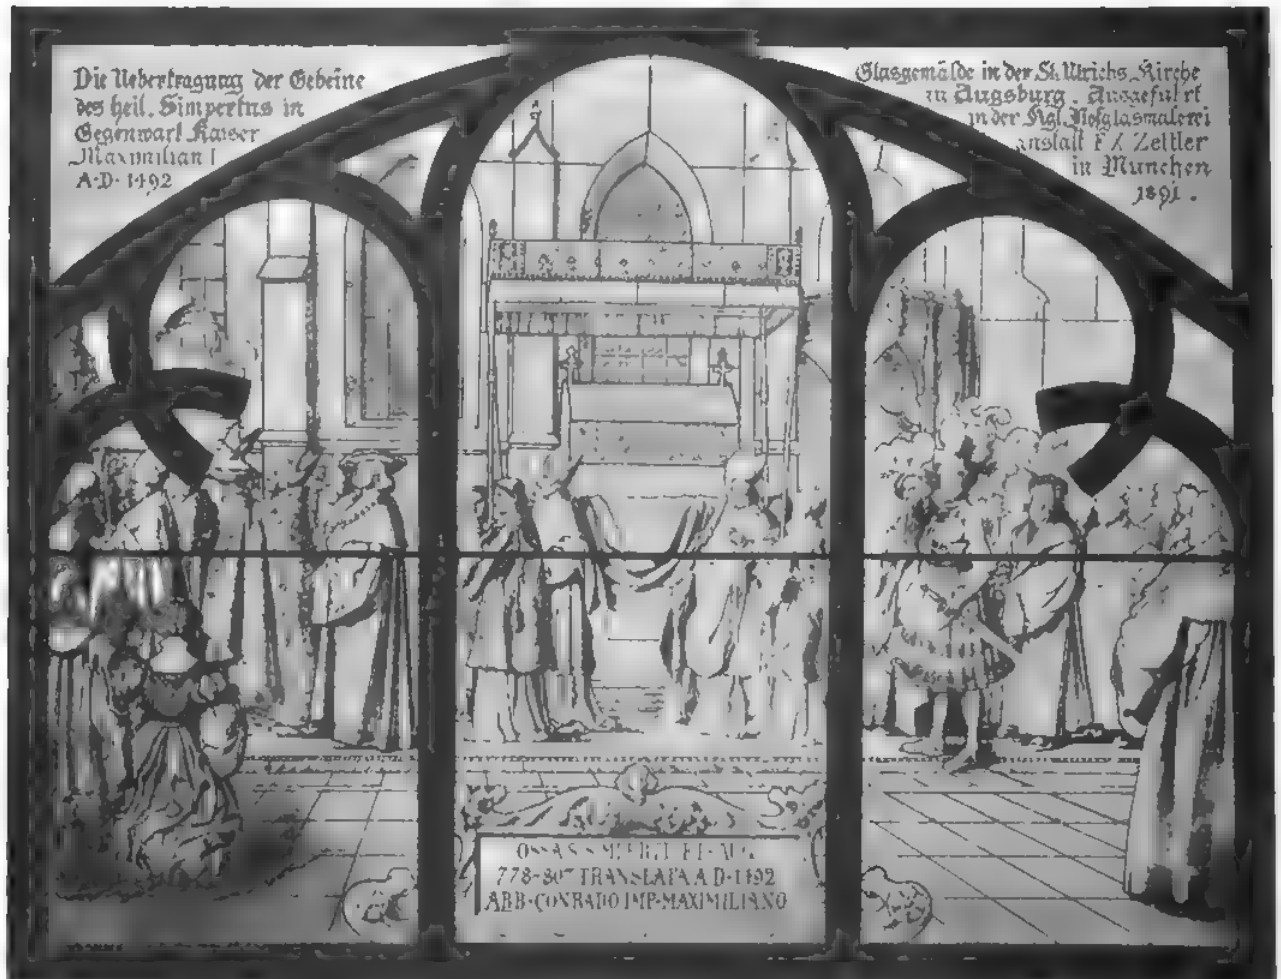 Die Uebertragung der Gebeine
des heil. Simpertus in
Gegenwart Kaiser
Maximilian I
A·D· 1492
Glasgemälde in der St. Ulrichs Kirche
in Augsburg. Ausgeführt
in der Kgl. Hofglasmalerei
anstalt F X Zettler
in München
1891.
778-807 TRANSLATA A D·1492
ABB·CONRADO IMP·MAXIMILIANO